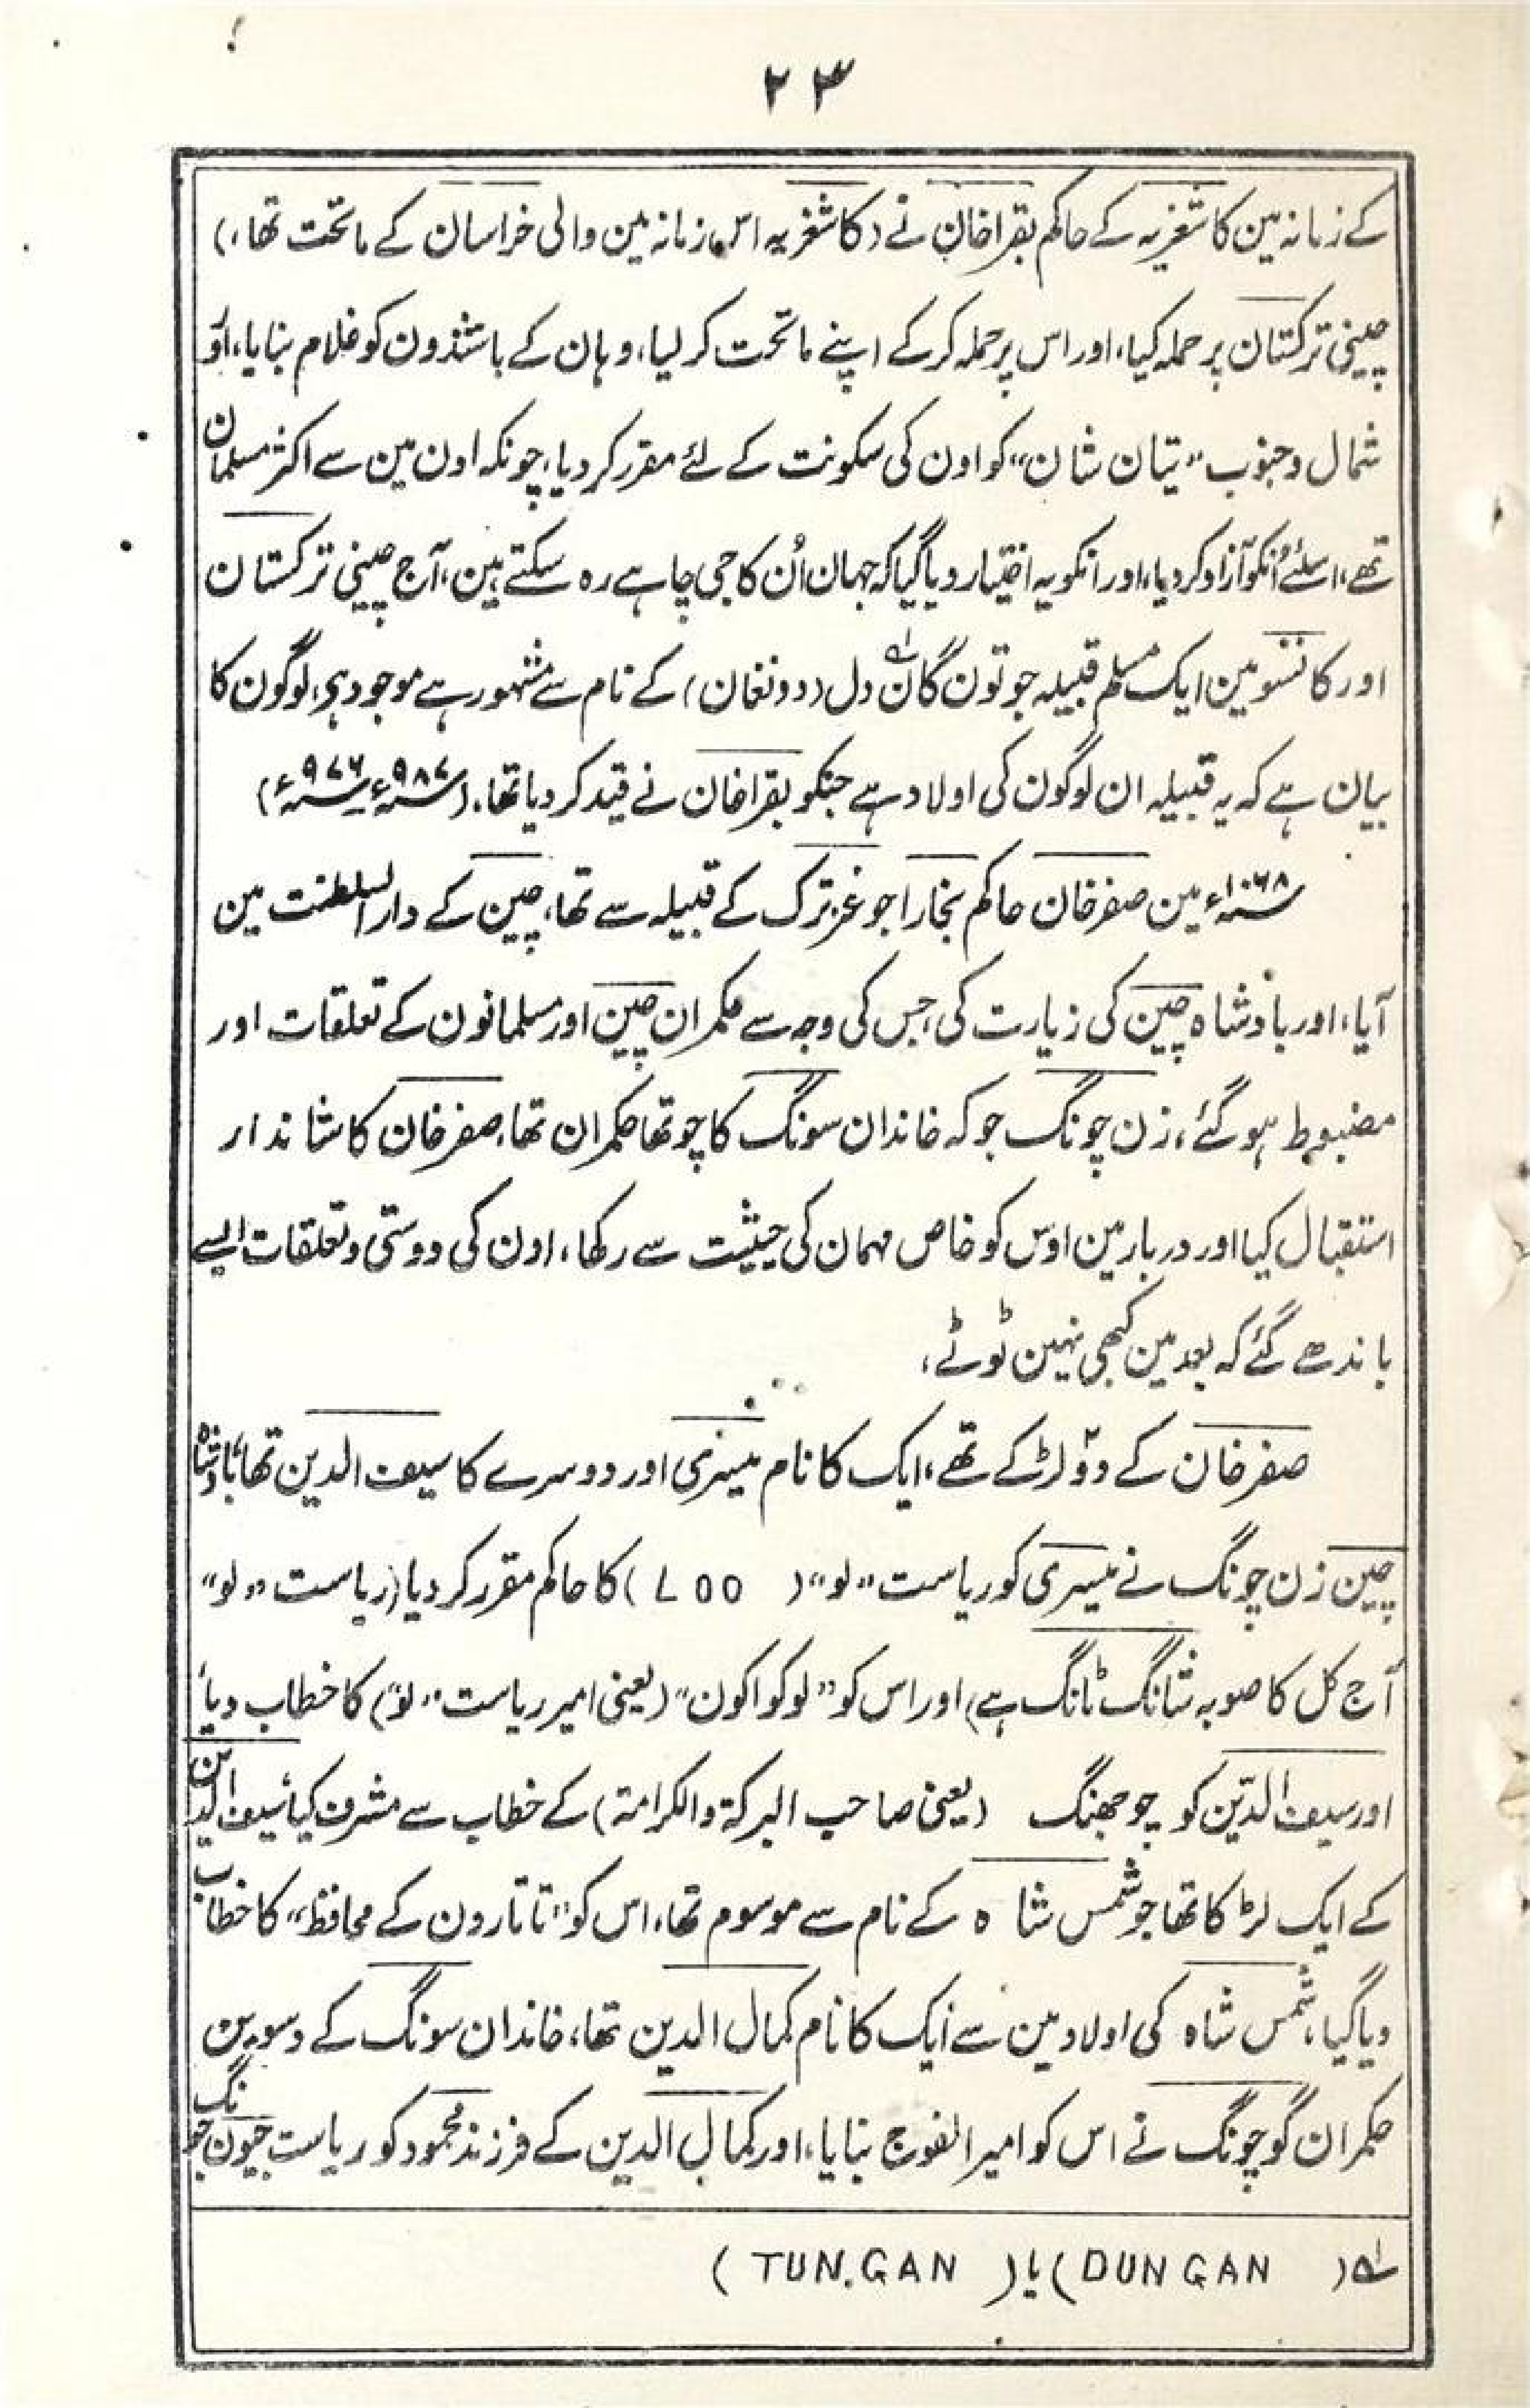 ۲۳
کے زمانہ مین کاشغریہ کے حاکم بقراخان نے (کاشغریہ اس زمانہ مین والی خراسان کے ماتحت تھا،)
چینی ترکستان پر حملہ کیا، اور اس پر حملہ کرکے اپنے ماتحت کر لیا، وہان کے باشندون کو غلام بنایا، اَور
شمال و جنوب "تیان شان" کو اون کی سکونت کے لئے مقرر کر دیا، چونکہ اون مین سے اکثر مسلمان
تھے، اسلئے اُنکو آزاد کر دیا، اور انکو یہ اختیار دیا گیا کہ جہان اُن کا جی چاہے رہ سکتے ہین، آج چینی ترکستان
اور کانسو مین ایک مسلم قبیلہ جو تون گان ؎۱ دل (دونغان) کے نام سے مشہور ہے موجود ہی، لوگون کا
بیان ہے کہ یہ قبیلہ ان لوگون کی اولاد ہے جنکو بقراخان نے قید کر دیا تھا، (۹۸۷ء ۹۷۶ء)
۱۰۶۸ء مین صفرخان حاکم بخارا جو غز ترک کے قبیلہ سے تھا، چین کے دار السلطنت مین
آیا، اور بادشاہ چین کی زیارت کی، جس کی وجہ سے حکمران چین اور مسلمانون کے تعلقات اور
مضبوط ہو گئے، زن چونگ جو کہ خاندان سونگ کا چوتھا حکمران تھا، صفرخان کا شاندار
استقبال کیا اور دربار مین اوس کو خاص مہمان کی حیثیت سے رکھا، اون کی دوستی و تعلقات ایسے
باندھے گئے کہ بعد مین کبھی نہین ٹوٹے،
صفرخان کے دو لڑکے تھے، ایک کا نام میسری اور دوسرے کا سیف الدین تھا، بادشاہ
چین زن چونگ نے میسری کو ریاست "لو" (LOO) کا حاکم مقرر کر دیا (ریاست "لو"
آج کل کا صوبہ شانگ ٹانگ ہے) اور اس کو "لوکواکون" (یعنی امیر ریاست "لو") کا خطاب دیا،
اور سیف الدّین کو چوجھنگ (یعنی صاحب البرکۃ والکرامۃ) کے خطاب سے مشرف کیا، سیف الدین
کے ایک لڑکا تھا جو شمس شاہ کے نام سے موسوم تھا، اس کو "تاتارون کے محافظ" کا خطاب
دیا گیا، شمس شاہ کی اولاد مین سے ایک کا نام کمال الدین تھا، خاندان سونگ کے دسوین
حکمران گوچونگ نے اس کو امیر الفوج بنایا، اور کمال الدین کے فرزند محمود کو ریاست
؎۱ (DUNGAN) یا (TUN.GAN)